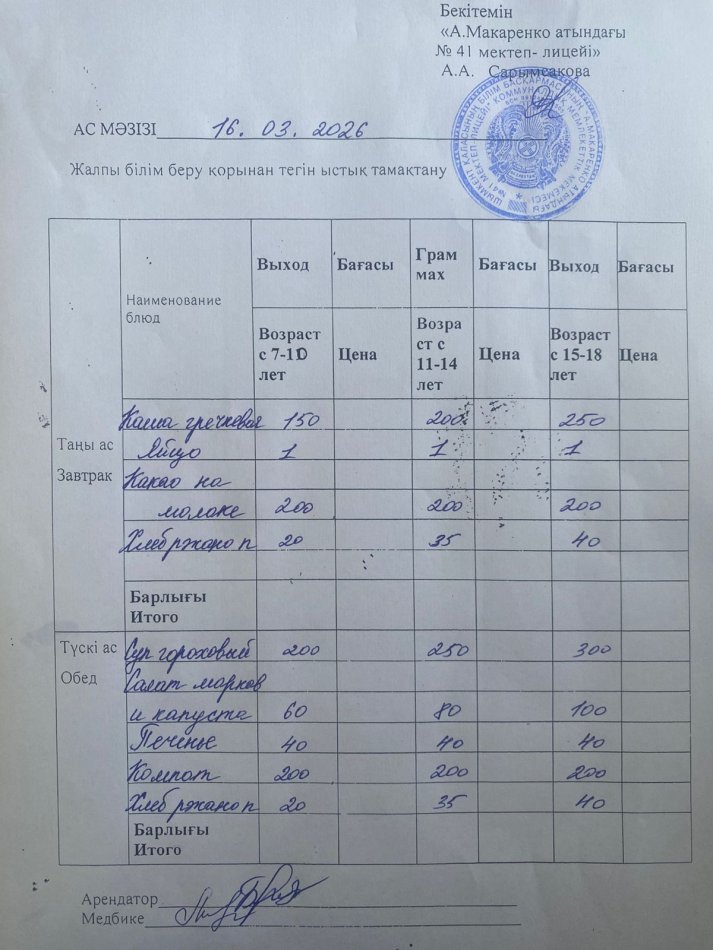 Бекітемін
«А.Макаренко атындағы
№ 41 мектеп- лицейі»
А.А. Сарымсакова
АС МӘЗІЗІ 16. 03. 2026
Жалпы білім беру қорынан тегін ыстық тамақтану
Наименование блюд Выход Бағасы Грам мах Бағасы Выход Бағасы
Возраст с 7-11 лет Цена Возра ст с 11-14 лет Цена Возраст с 15-18 лет Цена
Таңы ас
Завтрак
Каша гречневая 150 200 250
Яйцо 1 1 1
Какао на
молоке 200 200 200
Хлеб ржано п 20 35 40
Барлығы
Итого
Түскі ас
Обед
Суп гороховый 200 250 300
Салат морков
и капуста 60 80 100
Печенье 40 40 40
Компот 200 200 200
Хлеб ржано п 20 35 40
Барлығы
Итого
Арендатор
Медбике